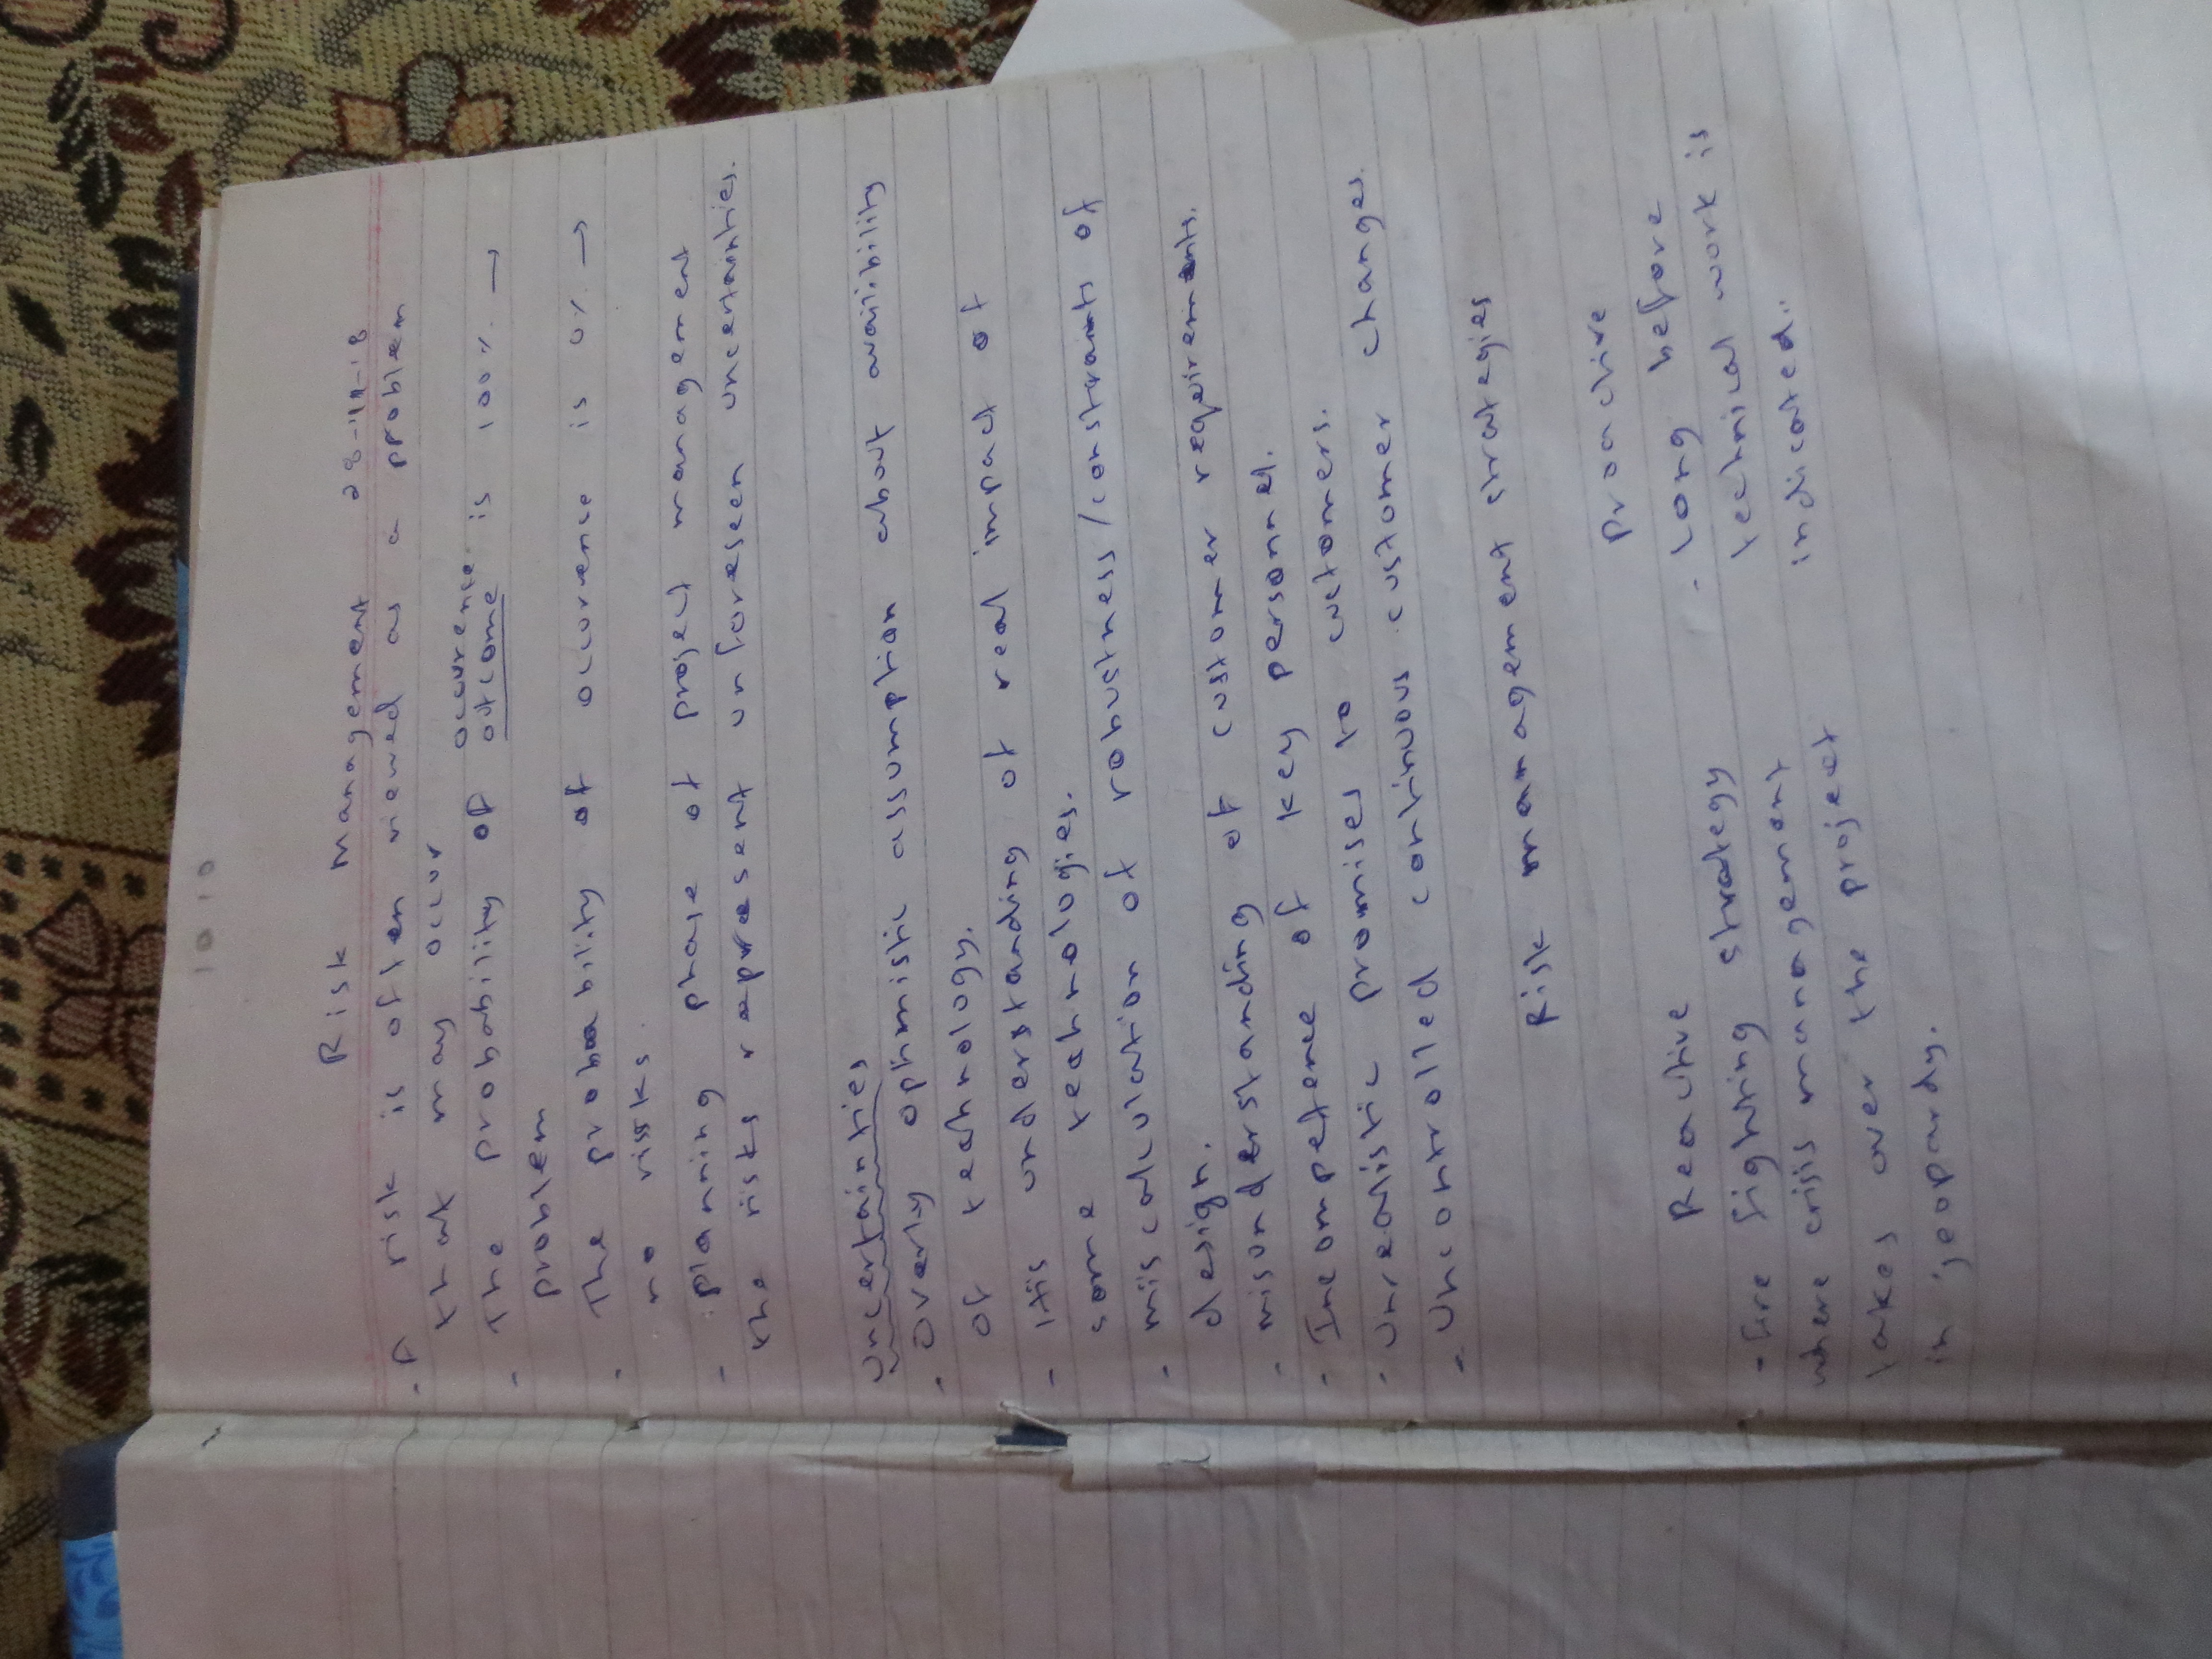 1010
Risk Management 28-11-18
- A risk is often viewed as a problem
that may occur
occurence
- The probability of outcome is 100% →
problem
- The probability of occurence is 0% →
no risks.
- planning phase of project management
the risks represent unforeseen uncertainties.
uncertainties
- overly optimistic assumption about availibility
of technology.
- understanding of real impact of
some technologies.
- miscalculation of robustness/constraints of
design.
- misunderstanding of customer requirements.
- Incompetence of key personnel.
- unrealistic promises to customers.
- uncontrolled continuous customer changes.
Risk management strategies
Reactive
- fire fighting strategy
where crisis management
takes over the project
in jeopardy.
Proactive
- long before
technical work is
indicated..